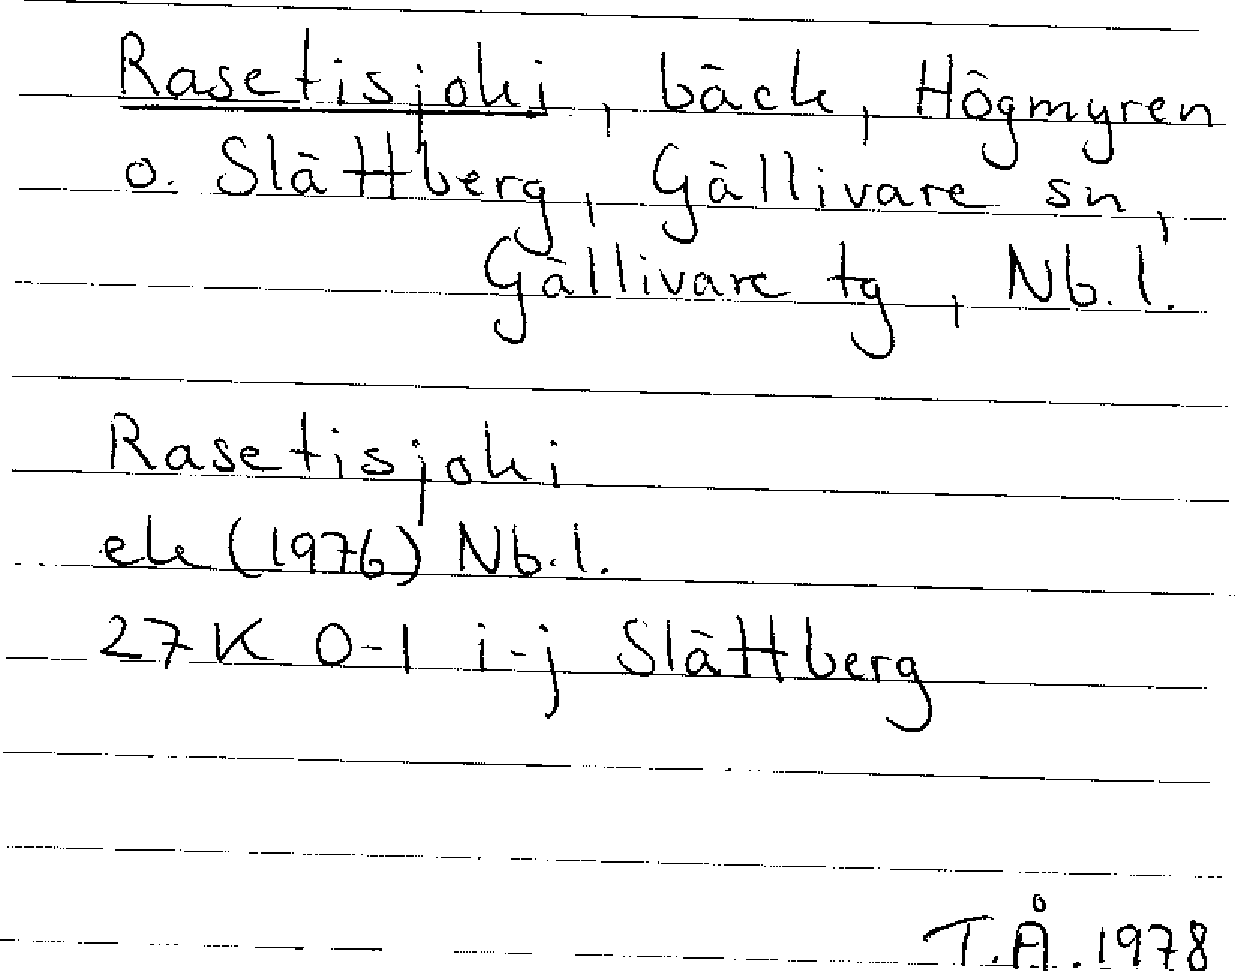 Rasetisjoki, bäck, Högmyren
o. Slättberg, Gällivare sn,
Gällivare tg, Nb. l.
Rasetisjoki
ek (1976) Nb. l.
27 K 0-1 i-j Slättberg
T.Å. 1978